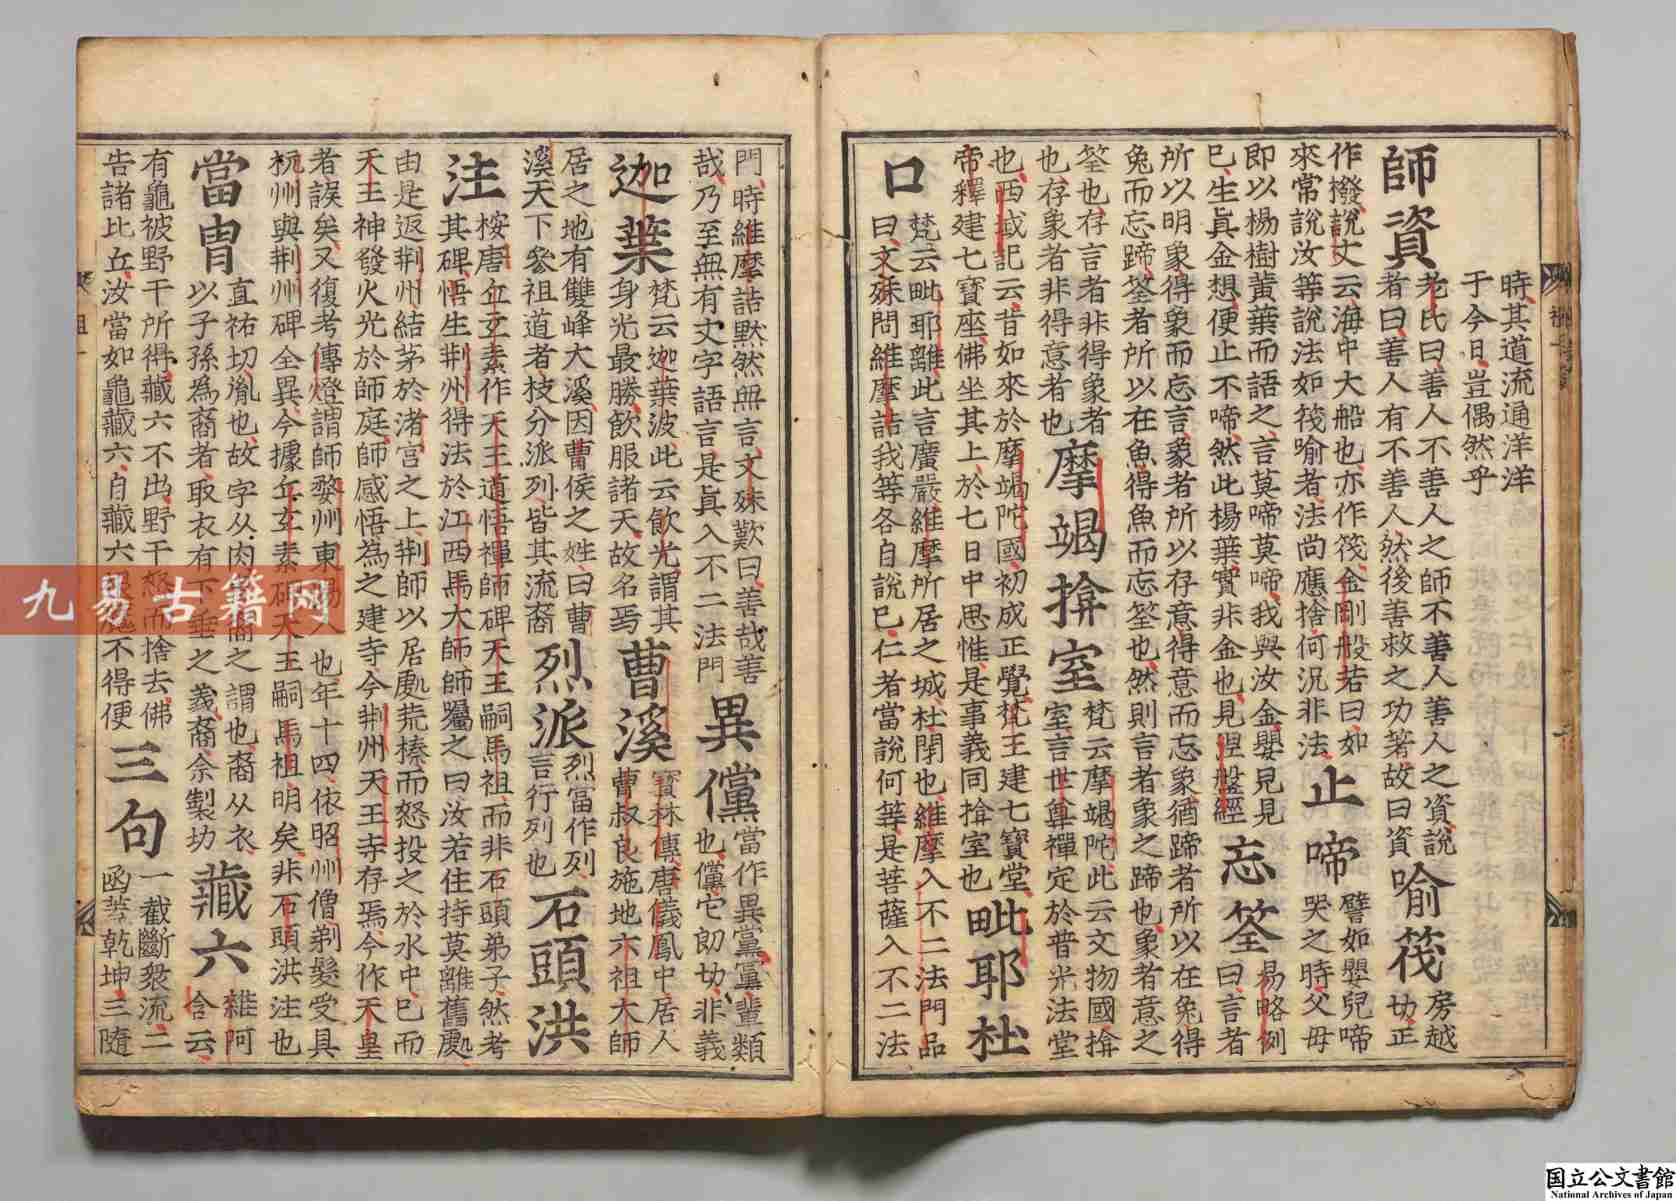 時其道流通洋洋
于今日豈偶然乎
師資
老氏曰善人不善人之師不善人善人之資說
者曰善人有不善人然後善救之功著故曰資
喻筏
房越
切正
作撥說文云海中大船也亦作筏金剛般若曰如
來常說汝等說法如筏喻者法尚應捨何況非法
止啼
譬如嬰兒啼
哭之時父母
即以楊樹黃葉而語之言莫啼莫啼我與汝金嬰兒見
已生真金想便止不啼然此楊葉實非金也見涅盤經
忘筌
易略例
曰言者
所以明象得象而忘言象者所以存意得意而忘象猶蹄者所以在兔得
兔而忘蹄筌者所以在魚得魚而忘筌也然則言者象之蹄也象者意之
筌也存言者非得象者
也存象者非得意者也
摩竭揜室
梵云摩竭陀此云文物國揜
室言世尊禪定於普光法堂
也西域記云昔如來於摩竭陀國初成正覺梵王建七寶堂
帝釋建七寶座佛坐其上於七日中思惟是事義同揜室也
毗耶杜
口
梵云毗耶離此言廣嚴維摩所居之城杜閉也維摩入不二法門品
曰文殊問維摩詰我等各自說已仁者當說何等是菩薩入不二法
門時維摩詰默然無言文殊歎曰善哉善
哉乃至無有文字語言是真入不二法門
異儻
當作異黨黨輩類
也儻它朗切非義
迦葉
梵云迦葉波此云飲光謂其
身光最勝飲服諸天故名焉
曹溪
寶林傳唐儀鳳中居人
曹叔良施地六祖大師
居之地有雙峰大溪因曹侯之姓曰曹
溪天下叅祖道者枝分派列皆其流裔
烈派
烈當作列
言行列也
石頭洪
注
桉唐丘玄素作天王道悟禪師碑天王嗣馬祖而非石頭弟子然考
其碑悟生荆州得法於江西馬大師師屬之曰汝若住持莫離舊處
由是返荆州結茅於渚宮之上荆師以居處荒榛而怒投之於水中已而
天王神發火光於師庭師感悟為之建寺今荆州天王寺存焉今作天皇
者誤矣又復考傳燈謂師婺州東陽人也年十四依昭州僧剃髮受具
杭州與荆州碑全異今據丘玄素碑天王嗣馬祖明矣非石頭洪注也
當胄
直祐切胤也故字从肉裔之謂也裔从衣
以子孫為裔者取衣有下垂之義裔余製切
藏六
雜阿
含云
有龜被野干所得藏六不出野干怒而捨去佛
告諸比丘汝當如龜藏六自藏六根魔不得便
三句
一截斷衆流二
函蓋乾坤三隨
九易古籍网
国立公文書館
National Archives of Japan